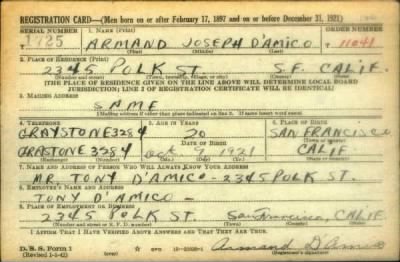 REGISTRATION CARD—(Men born on or after February 17, 1897 and on or before December 31, 1921)
SERIAL NUMBER 1. NAME (Print) ORDER NUMBER
1725 ARMAND JOSEPH D'AMICO 11041
(First) (Middle) (Last)
2. PLACE OF RESIDENCE (Print)
2345 POLK ST. S.F. CALIF.
(Number and street) (Town, township, village, or city) (County) (State)
[THE PLACE OF RESIDENCE GIVEN ON THE LINE ABOVE WILL DETERMINE LOCAL BOARD
JURISDICTION; LINE 2 OF REGISTRATION CERTIFICATE WILL BE IDENTICAL]
3. MAILING ADDRESS
SAME
[Mailing address if other than place indicated on line 2. If same insert word same]
4. TELEPHONE 5. AGE IN YEARS 6. PLACE OF BIRTH
GRAYSTONE 3284 20 SAN FRANCISCO
DATE OF BIRTH (Town or county)
GRASTONE 3284 Oct 9 1921 CALIF
(Exchange) (Number) (Mo.) (Day) (Yr.) (State or country)
7. NAME AND ADDRESS OF PERSON WHO WILL ALWAYS KNOW YOUR ADDRESS
MR. TONY D'AMICO - 2345 POLK ST.
8. EMPLOYER'S NAME AND ADDRESS
TONY D'AMICO -
9. PLACE OF EMPLOYMENT OR BUSINESS
2345 POLK ST. San Francisco, CALIF.
(Number and street or R. F. D. number) (Town) (County) (State)
I AFFIRM THAT I HAVE VERIFIED ABOVE ANSWERS AND THAT THEY ARE TRUE.
D. S. S. Form 1
(Revised 1-5-42) Armand D'Amico
(Registrant's signature)